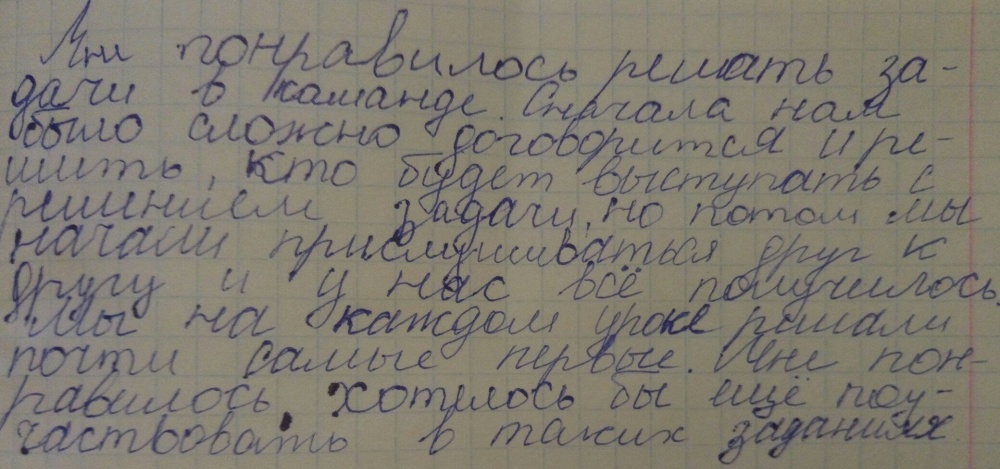 Мне понравилось решать за-
дачи в команде. Сначала нам
было сложно договорится и ре-
шить, кто будет выступать с
решением задачи, но потом мы
начали прислушиваться друг к
другу и у нас всё получилось
Мы на каждом уроке решали
почти самые первые. Мне пон-
равилось, хотелось бы ещё поу-
частвовать в таких заданиях.